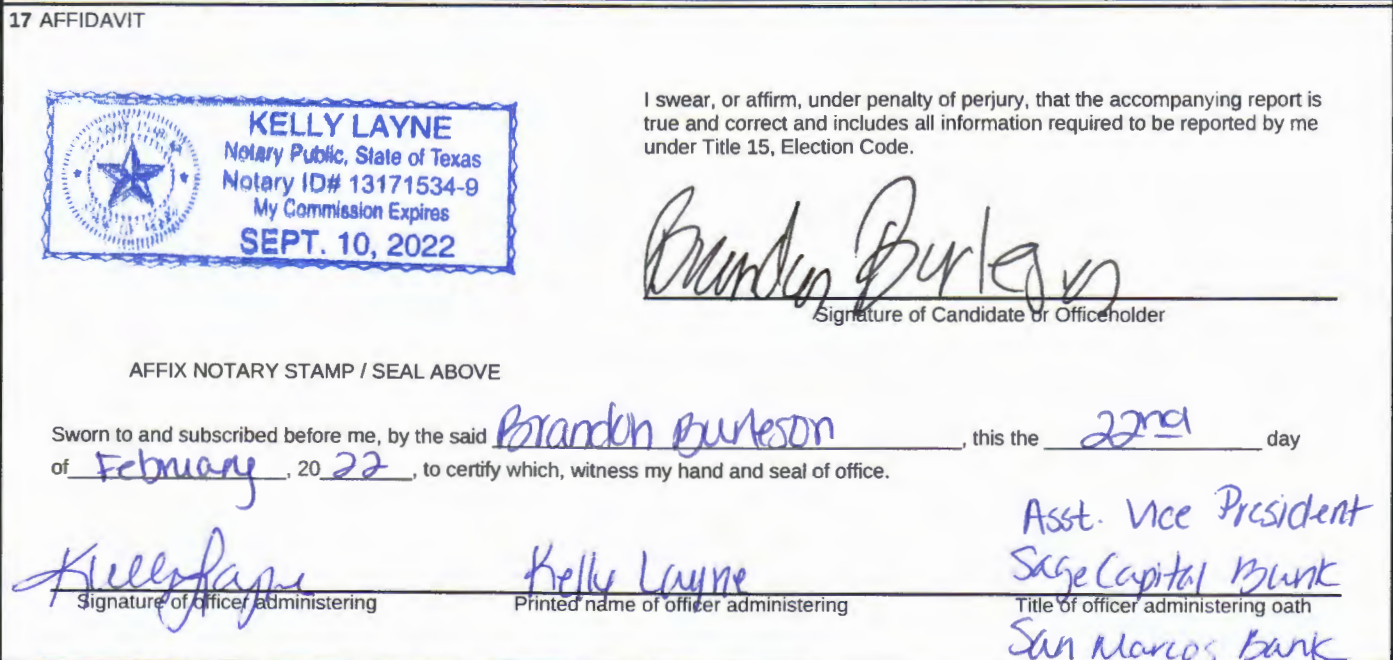 17 AFFIDAVIT
KELLY LAYNE
Notary Public, State of Texas
Notary ID# 13171534-9
My Commission Expires
SEPT. 10, 2022
I swear, or affirm, under penalty of perjury, that the accompanying report is
true and correct and includes all information required to be reported by me
under Title 15, Election Code.
Brandon Burleson
Signature of Candidate or Officeholder
AFFIX NOTARY STAMP / SEAL ABOVE
Sworn to and subscribed before me, by the said Brandon Burleson, this the 22nd day
of February, 20 22, to certify which, witness my hand and seal of office.
Asst. Vice President
Kelly Layne Kelly Layne Sage Capital Bank
Signature of officer administering Printed name of officer administering Title of officer administering oath
San Marcos Bank